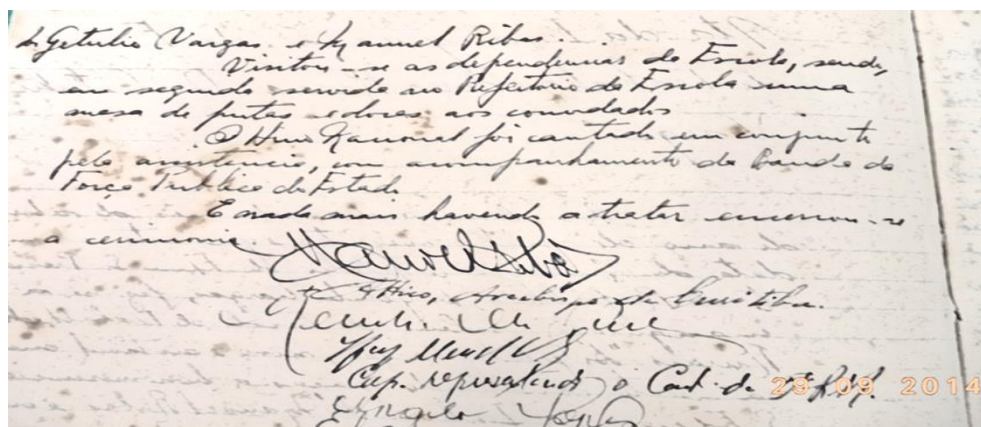 Getulio Vargas e Manuel Ribas.
Visitou-se as dependencias da Escola, sendo,
em seguida servida no Refeitorio da Escola uma
mesa de frutas e doces aos convidados
O Hino Nacional foi cantado em conjunto
pela assistencia, com acompanhamento da Banda da
Força Publica do Estado
E nada mais havendo a tratar encerrou-se
a cerimonia.
Manoel Ribas
Attico, Arcebispo de Curitiba.
Cap. representando o Cmt. da 5ª R.M.
29 09 2014